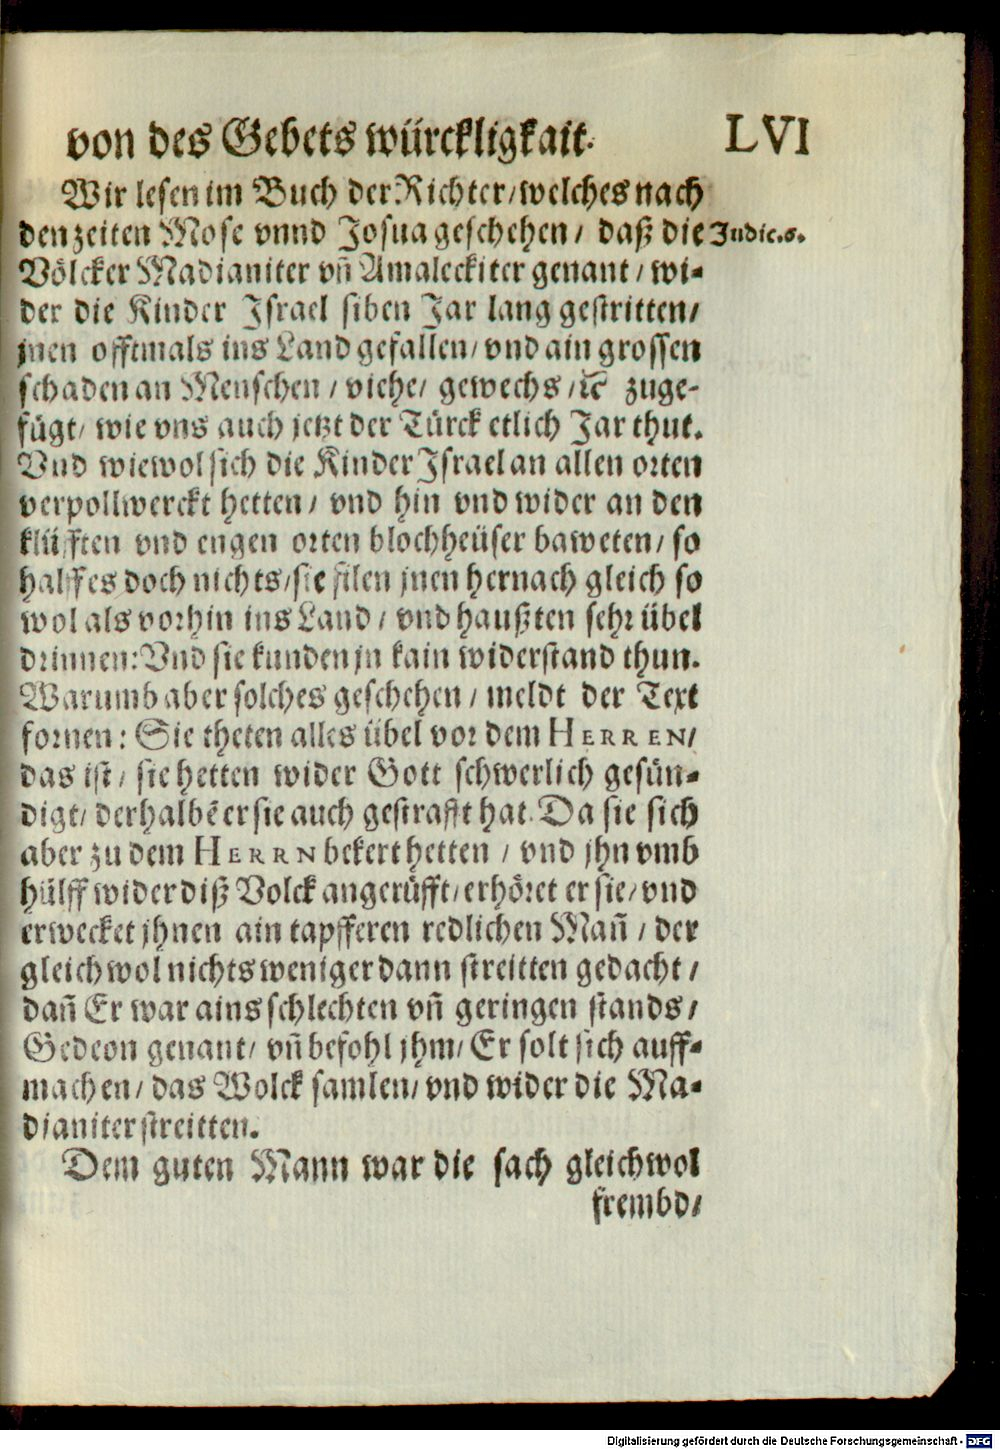 von des Gebets würckligkait. LVI
Wir lesen im Buch der Richter/welches nach
den zeiten Mose vnnd Josua geschehen/ daß die Judic.6.
Völcker Madianiter vn̄ Amaleckiter genant/ wi-
der die Kinder Israel siben Jar lang gestritten/
jnen offtmals ins Land gefallen/ vnd ain grossen
schaden an Menschen/ viehe/ gewechs/ ꝛc zuge-
fügt/ wie vns auch jetzt der Türck etlich Jar thut.
Vnd wiewol sich die Kinder Israel an allen orten
verpollwerckt hetten/ vnd hin vnd wider an den
klüfften vnd engen orten blochheüser baweten/ so
halff es doch nichts/ sie filen jnen hernach gleich so
wol als vorhin ins Land/ vnd haußten sehr übel
drinnen: Vnd sie kunden jn kain widerstand thun.
Warumb aber solches geschehen/ meldt der Text
fornen: Sie theten alles übel vor dem HERREN/
das ist/ sie hetten wider Gott schwerlich gesün-
digt/ derhalbē er sie auch gestrafft hat. Da sie sich
aber zu dem HERRN bekert hetten/ vnd jhn vmb
hülff wider diß Volck angerüfft/ erhöret er sie/ vnd
erwecket jhnen ain tapfferen redlichen Mañ/ der
gleichwol nichts weniger dann streitten gedacht/
dañ Er war ains schlechten vñ geringen stands/
Gedeon genant/ vñ befohl jhm/ Er solt sich auff-
machen/ das Wolck samlen/ vnd wider die Ma-
dianiter streitten.
Dem guten Mann war die sach gleichwol
frembd/
Digitalisierung gefördert durch die Deutsche Forschungsgemeinschaft - DFG